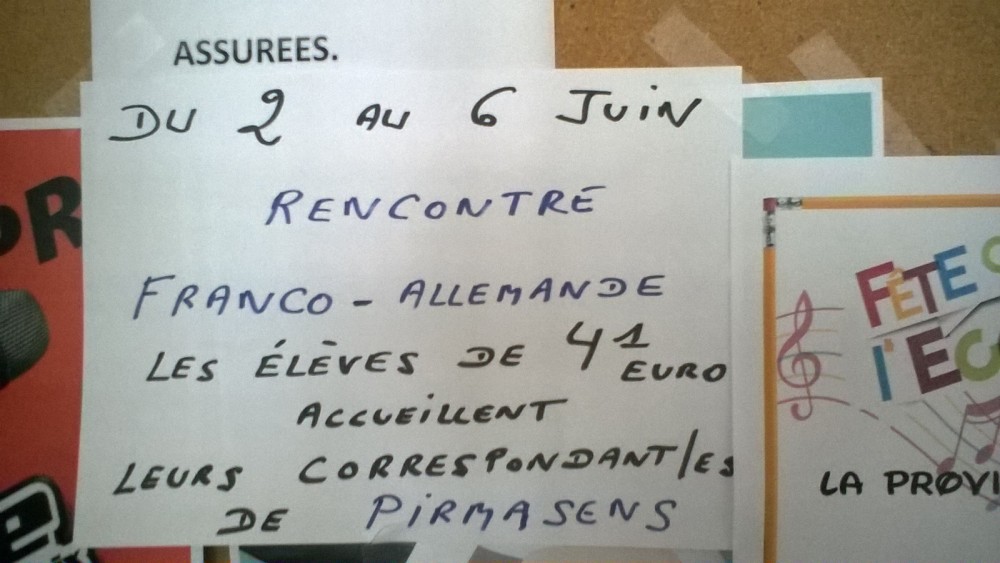 ASSUREES.
DU 2 AU 6 JUIN
RENCONTRE
FRANCO - ALLEMANDE
LES ÉLÈVES DE 4 1 EURO
ACCUEILLENT
LEURS CORRESPONDANT/ES
DE PIRMASENS
FÊTE
l'
LA PROVI